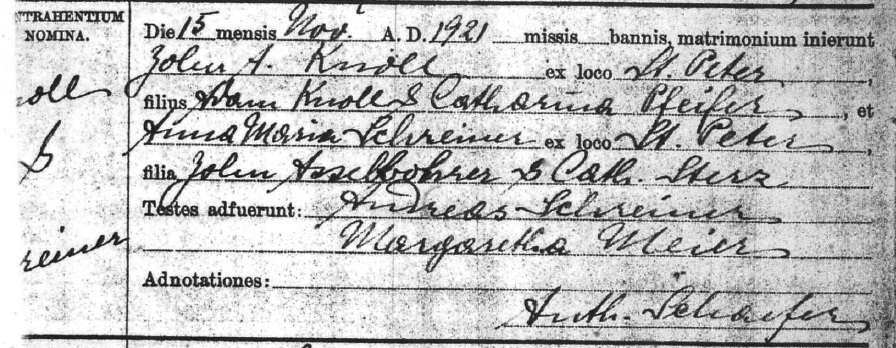 NTRAHENTIUM
NOMINA.
Die 15 mensis Nov. A. D. 1921 missis bannis, matrimonium inierunt
John A. Knoll ex loco St. Peter,
oll
filius Adam Knoll & Catharina Pfeifer, et
&
Anna Maria Schreiner ex loco St. Peter,
filia John Asselbohrer & Cath. Sterz
Testes adfuerunt: Andreas Schreiner
reiner
Margaretha Meier
Adnotationes:
Anth. Schaefer